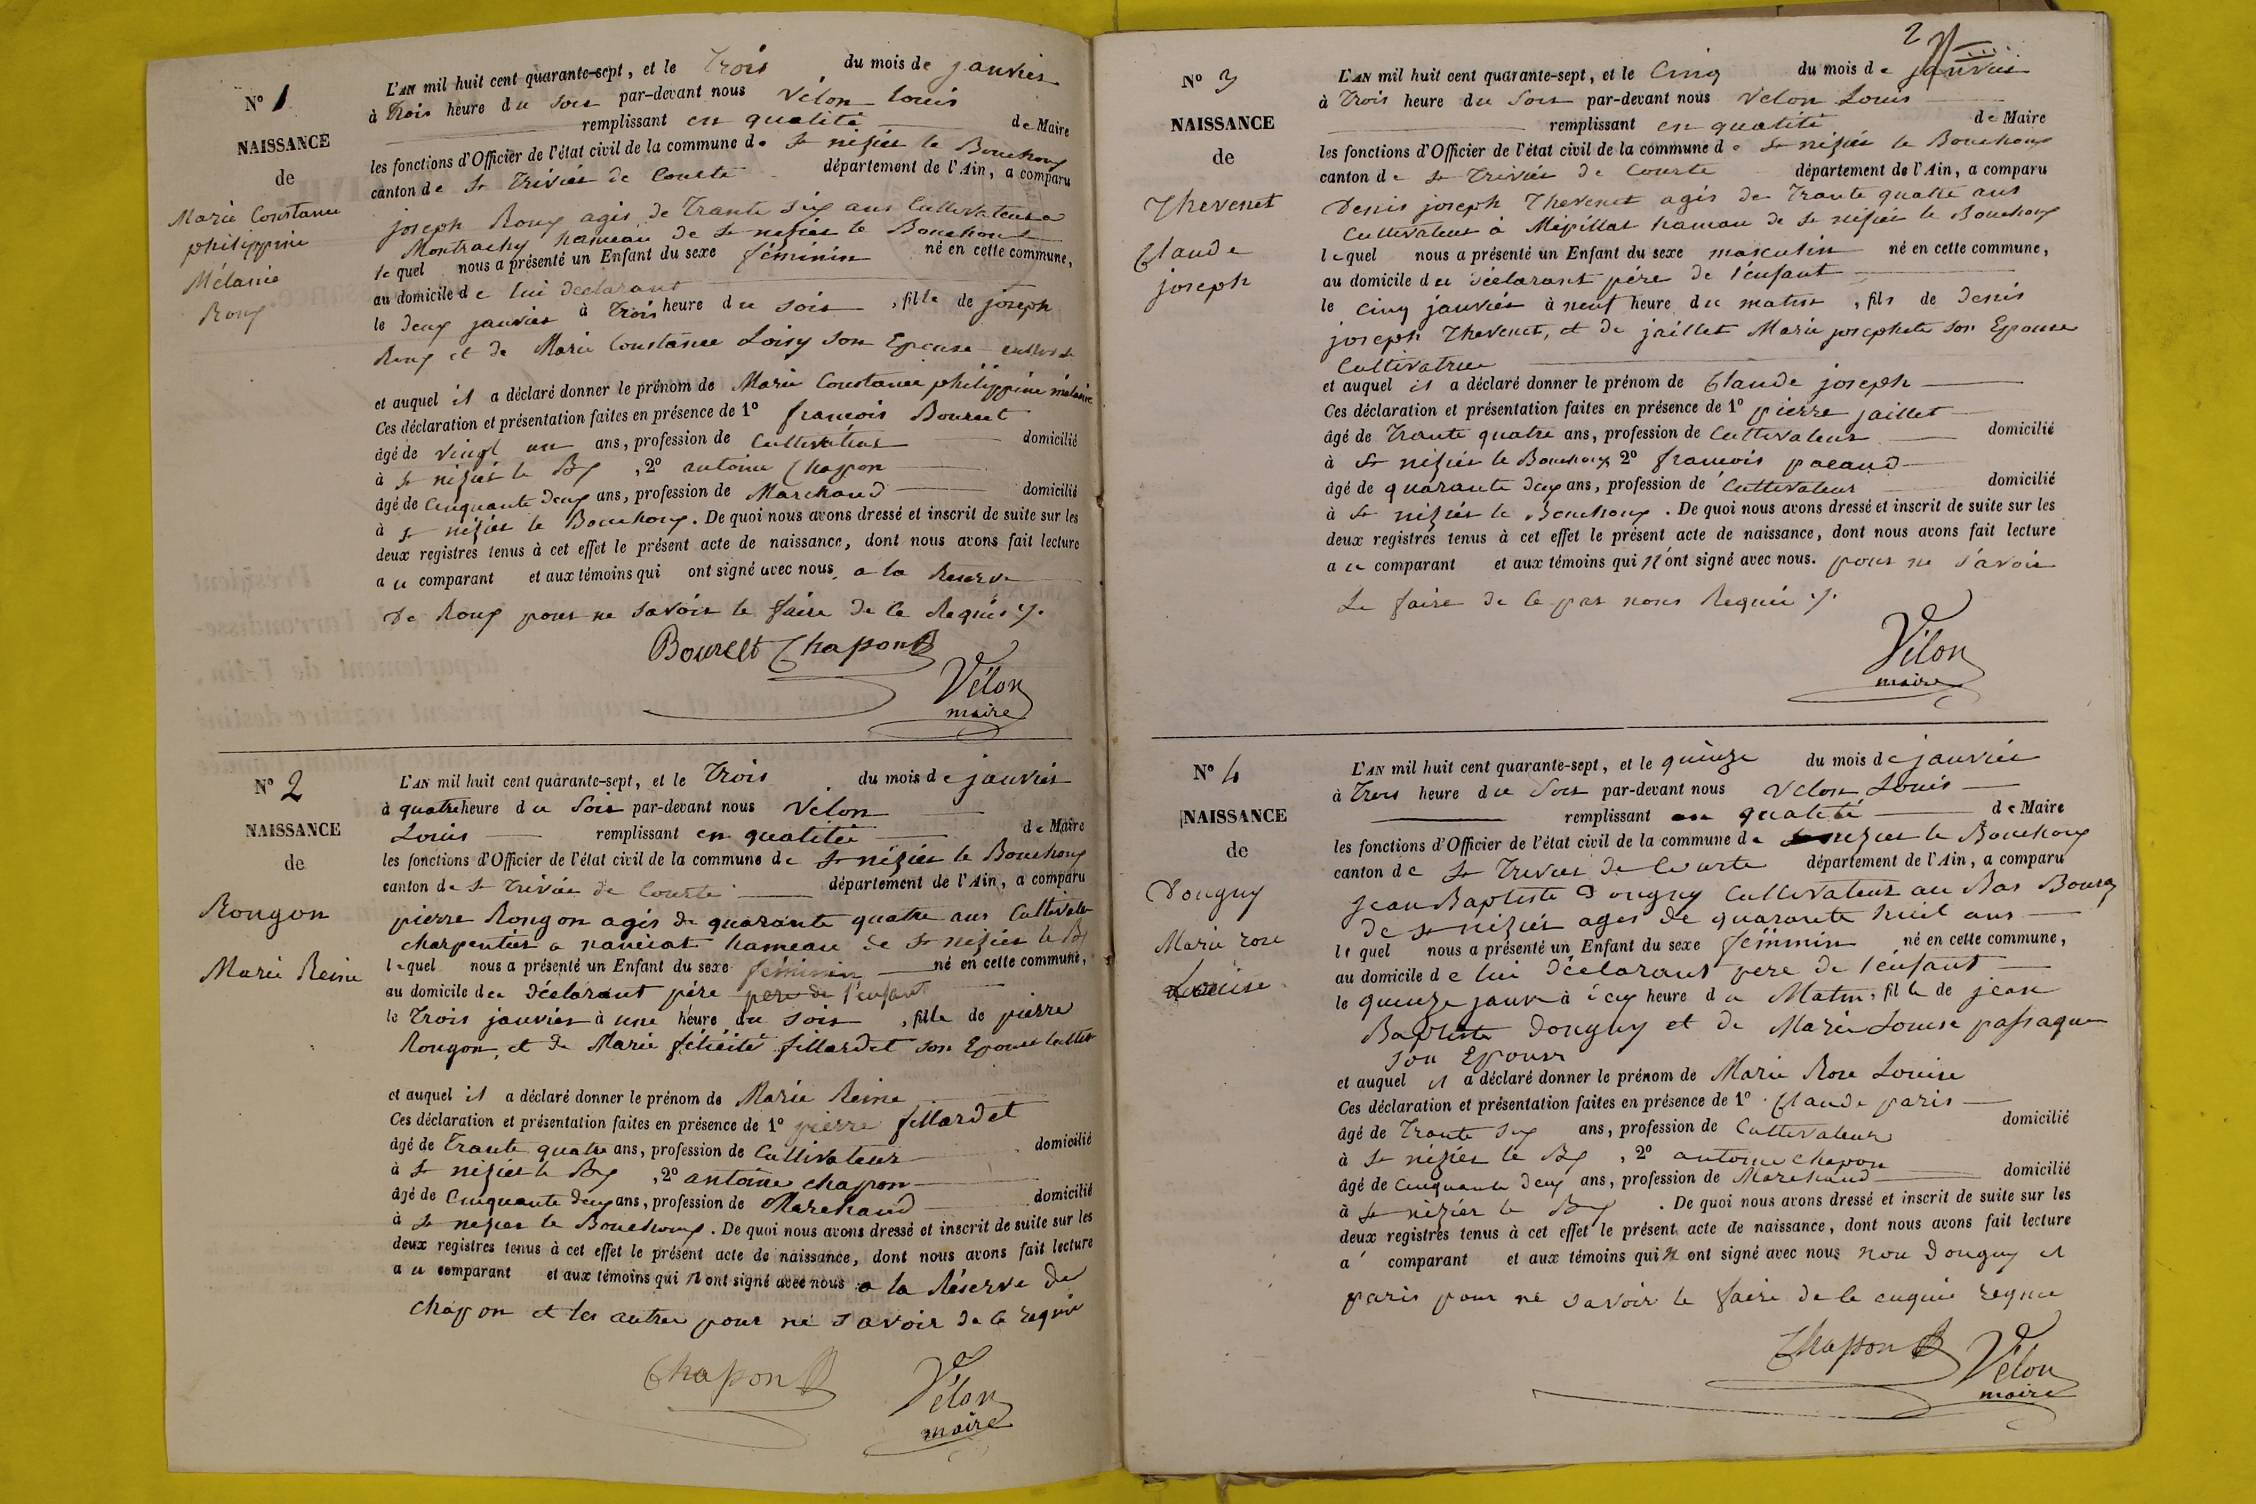 N° 1
NAISSANCE
de
Marie Constance
philippine
Mélanie
Roux
L'AN mil huit cent quarante-sept, et le Trois du mois de janvier
à Trois heure du soir par-devant nous Vélon Louis
remplissant en qualité de Maire
les fonctions d'Officier de l'état civil de la commune de St nizier le Bouchoux
canton de St Trivier de Courte département de l'Ain, a comparu
joseph Roux agis de Trante six ans Cultivateur a
Montrachy hameau de St nizier le Bouchoux
lequel nous a présenté un Enfant du sexe féminin né en cette commune,
au domicile de lui déclarant
le deux janvier à Trois heure du soir, fille de joseph
Roux et de Marie Constance Loisy son Epouse
et auquel il a déclaré donner le prénom de Marie Constance philippine mélanie
Ces déclaration et présentation faites en présence de 1° francois Bourcet
âgé de vingt un ans, profession de Cultivateur domicilié
à St nizier le Bx, 2° antoine Chapon
âgé de Cinquante deux ans, profession de Marchand domicilié
à St nizier le Bouchoux. De quoi nous avons dressé et inscrit de suite sur les
deux registres tenus à cet effet le présent acte de naissance, dont nous avons fait lecture
au comparant et aux témoins qui ont signé avec nous, a la Reserve
De Roux pour ne savoir le faire de le Requis ./.
Bourcet Chapon
Vélon
maire
N° 2
NAISSANCE
de
Rongon
Marie Reine
L'AN mil huit cent quarante-sept, et le Trois du mois de janvier
à quatre heure du Soir par-devant nous Vélon
Louis remplissant en qualitée de Maire
les fonctions d'Officier de l'état civil de la commune de St nizier le Bouchoux
canton de St Trivier de Courte département de l'Ain, a comparu
pierre Rongon agis de quarante quatre ans Cultivateur
charpentier a hameau de St nizier le Bx
lequel nous a présenté un Enfant du sexe féminin né en cette commune,
au domicile du déclarant pére pere de l'enfant
le Trois janvier à une heure du soir, fille de pierre
Rongon, et de Marie félicité fillardet son Epouse
et auquel il a déclaré donner le prénom de Marie Reine
Ces déclaration et présentation faites en présence de 1° pierre fillardet
âgé de Trante quatre ans, profession de Cultivateur domicilié
à St nizier le Bx, 2° antoine chapon
âgé de Cinquante deux ans, profession de Marchand domicilié
à St nizier le Bouchoux. De quoi nous avons dressé et inscrit de suite sur les
deux registres tenus à cet effet le présent acte de naissance, dont nous avons fait lecture
au comparant et aux témoins qui n'ont signé avec nous a la Réserve de
chapon et les autre pour ne savoir de le requis
Chapon
Vélon
maire
2
N° 3
NAISSANCE
de
Thevenet
Claude
joseph
L'AN mil huit cent quarante-sept, et le Cinq du mois de janvier
à Trois heure du Soir par-devant nous Velon Louis
remplissant en qualité de Maire
les fonctions d'Officier de l'état civil de la commune de St nizier le Bouchoux
canton de St Trivier de Courte département de l'Ain, a comparu
Denis joseph Thevenet agis de Trante quatre ans
Cultivateur à Mizillat hamau de St nizier le Bouchoux
lequel nous a présenté un Enfant du sexe masculin né en cette commune,
au domicile du déclarant pére de l'enfant
le cinq janvier à neuf heure du matin, fils de Denis
joseph Thevenet, et de jaillet Marie josephete son Epouse
Cultivatrice
et auquel il a déclaré donner le prénom de Claude joseph
Ces déclaration et présentation faites en présence de 1° pierre jaillet
âgé de Trante quatre ans, profession de Cultivateur domicilié
à St nizier le Bouchoux 2° francois pacaud
âgé de quarante deux ans, profession de Cultivateur domicilié
à St nizier le Bouchoux. De quoi nous avons dressé et inscrit de suite sur les
deux registres tenus à cet effet le présent acte de naissance, dont nous avons fait lecture
au comparant et aux témoins qui n'ont signé avec nous. pour ne savoir
Le faire de le par nous Requis ./.
Vélon
maire
N° 4
NAISSANCE
de
Dongny
Marie rose
Louise
L'AN mil huit cent quarante-sept, et le quinze du mois de janvier
à Trois heure du Soir par-devant nous Velon Louis
remplissant en qualité de Maire
les fonctions d'Officier de l'état civil de la commune de St nizier le Bouchoux
canton de St Trivier de Courte département de l'Ain, a comparu
jean Baptiste Dongny Cultivateur au Bas Bourg
de St nizier ages de quarante huit ans
lequel nous a présenté un Enfant du sexe féminin né en cette commune,
au domicile de lui déclarant pere de l'enfant
le quinze janv à heure du Matin, fille de jean
Baptiste Dongny et de Marie Louise passaque
son Epouse
et auquel il a déclaré donner le prénom de Marie Rose Louise
Ces déclaration et présentation faites en présence de 1° Claude paris
âgé de Trante six ans, profession de Cultivateur domicilié
à St nizier le Bx, 2° antoine chapon
âgé de Cinquante deux ans, profession de Marchand domicilié
à St nizier le Bx. De quoi nous avons dressé et inscrit de suite sur les
deux registres tenus à cet effet le présent acte de naissance, dont nous avons fait lecture
a comparant et aux témoins qui n ont signé avec nous non Dongny et
paris pour ne savoir le faire de le
Chapon
Vélon
maire